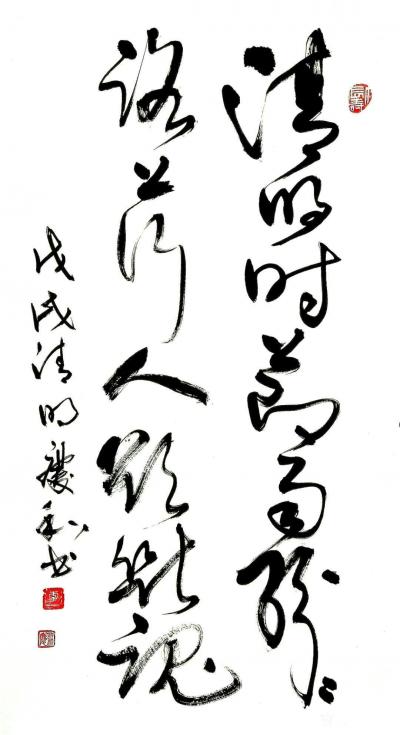 清明时节雨纷纷
路上行人欲断魂
戊戌清明慶利书